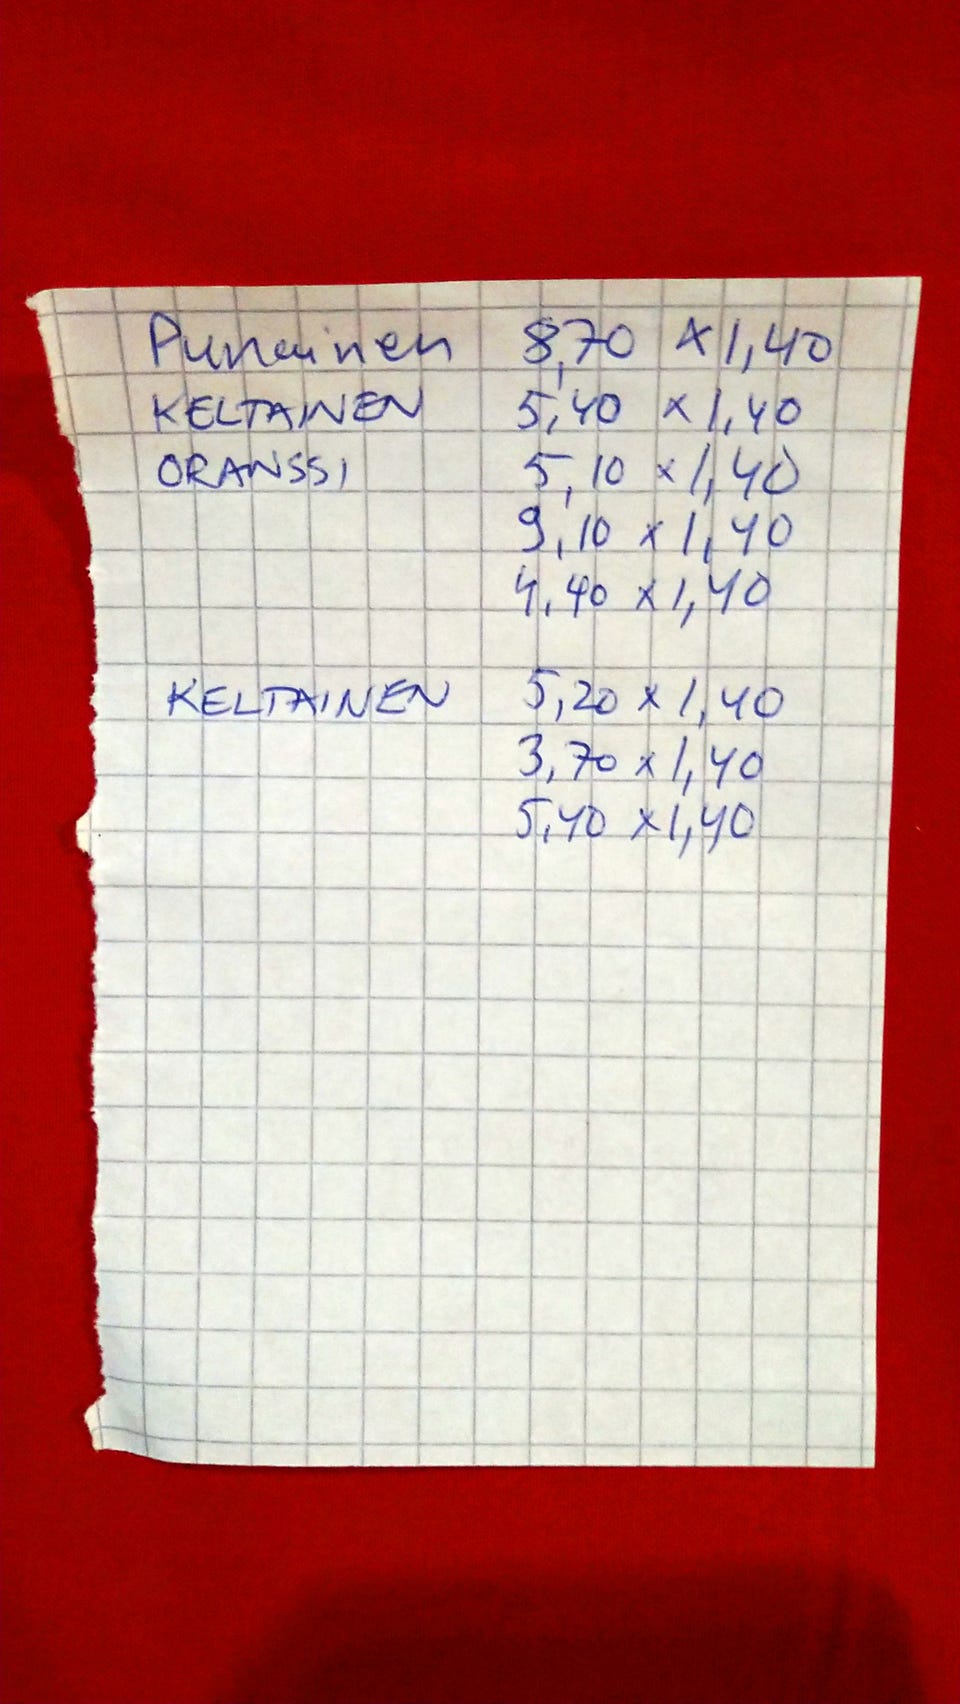 Punainen 8,70 x 1,40
KELTAINEN 5,40 x 1,40
ORANSSI 5,10 x 1,40
9,10 x 1,40
4,40 x 1,40
KELTAINEN 5,20 x 1,40
3,70 x 1,40
5,40 x 1,40